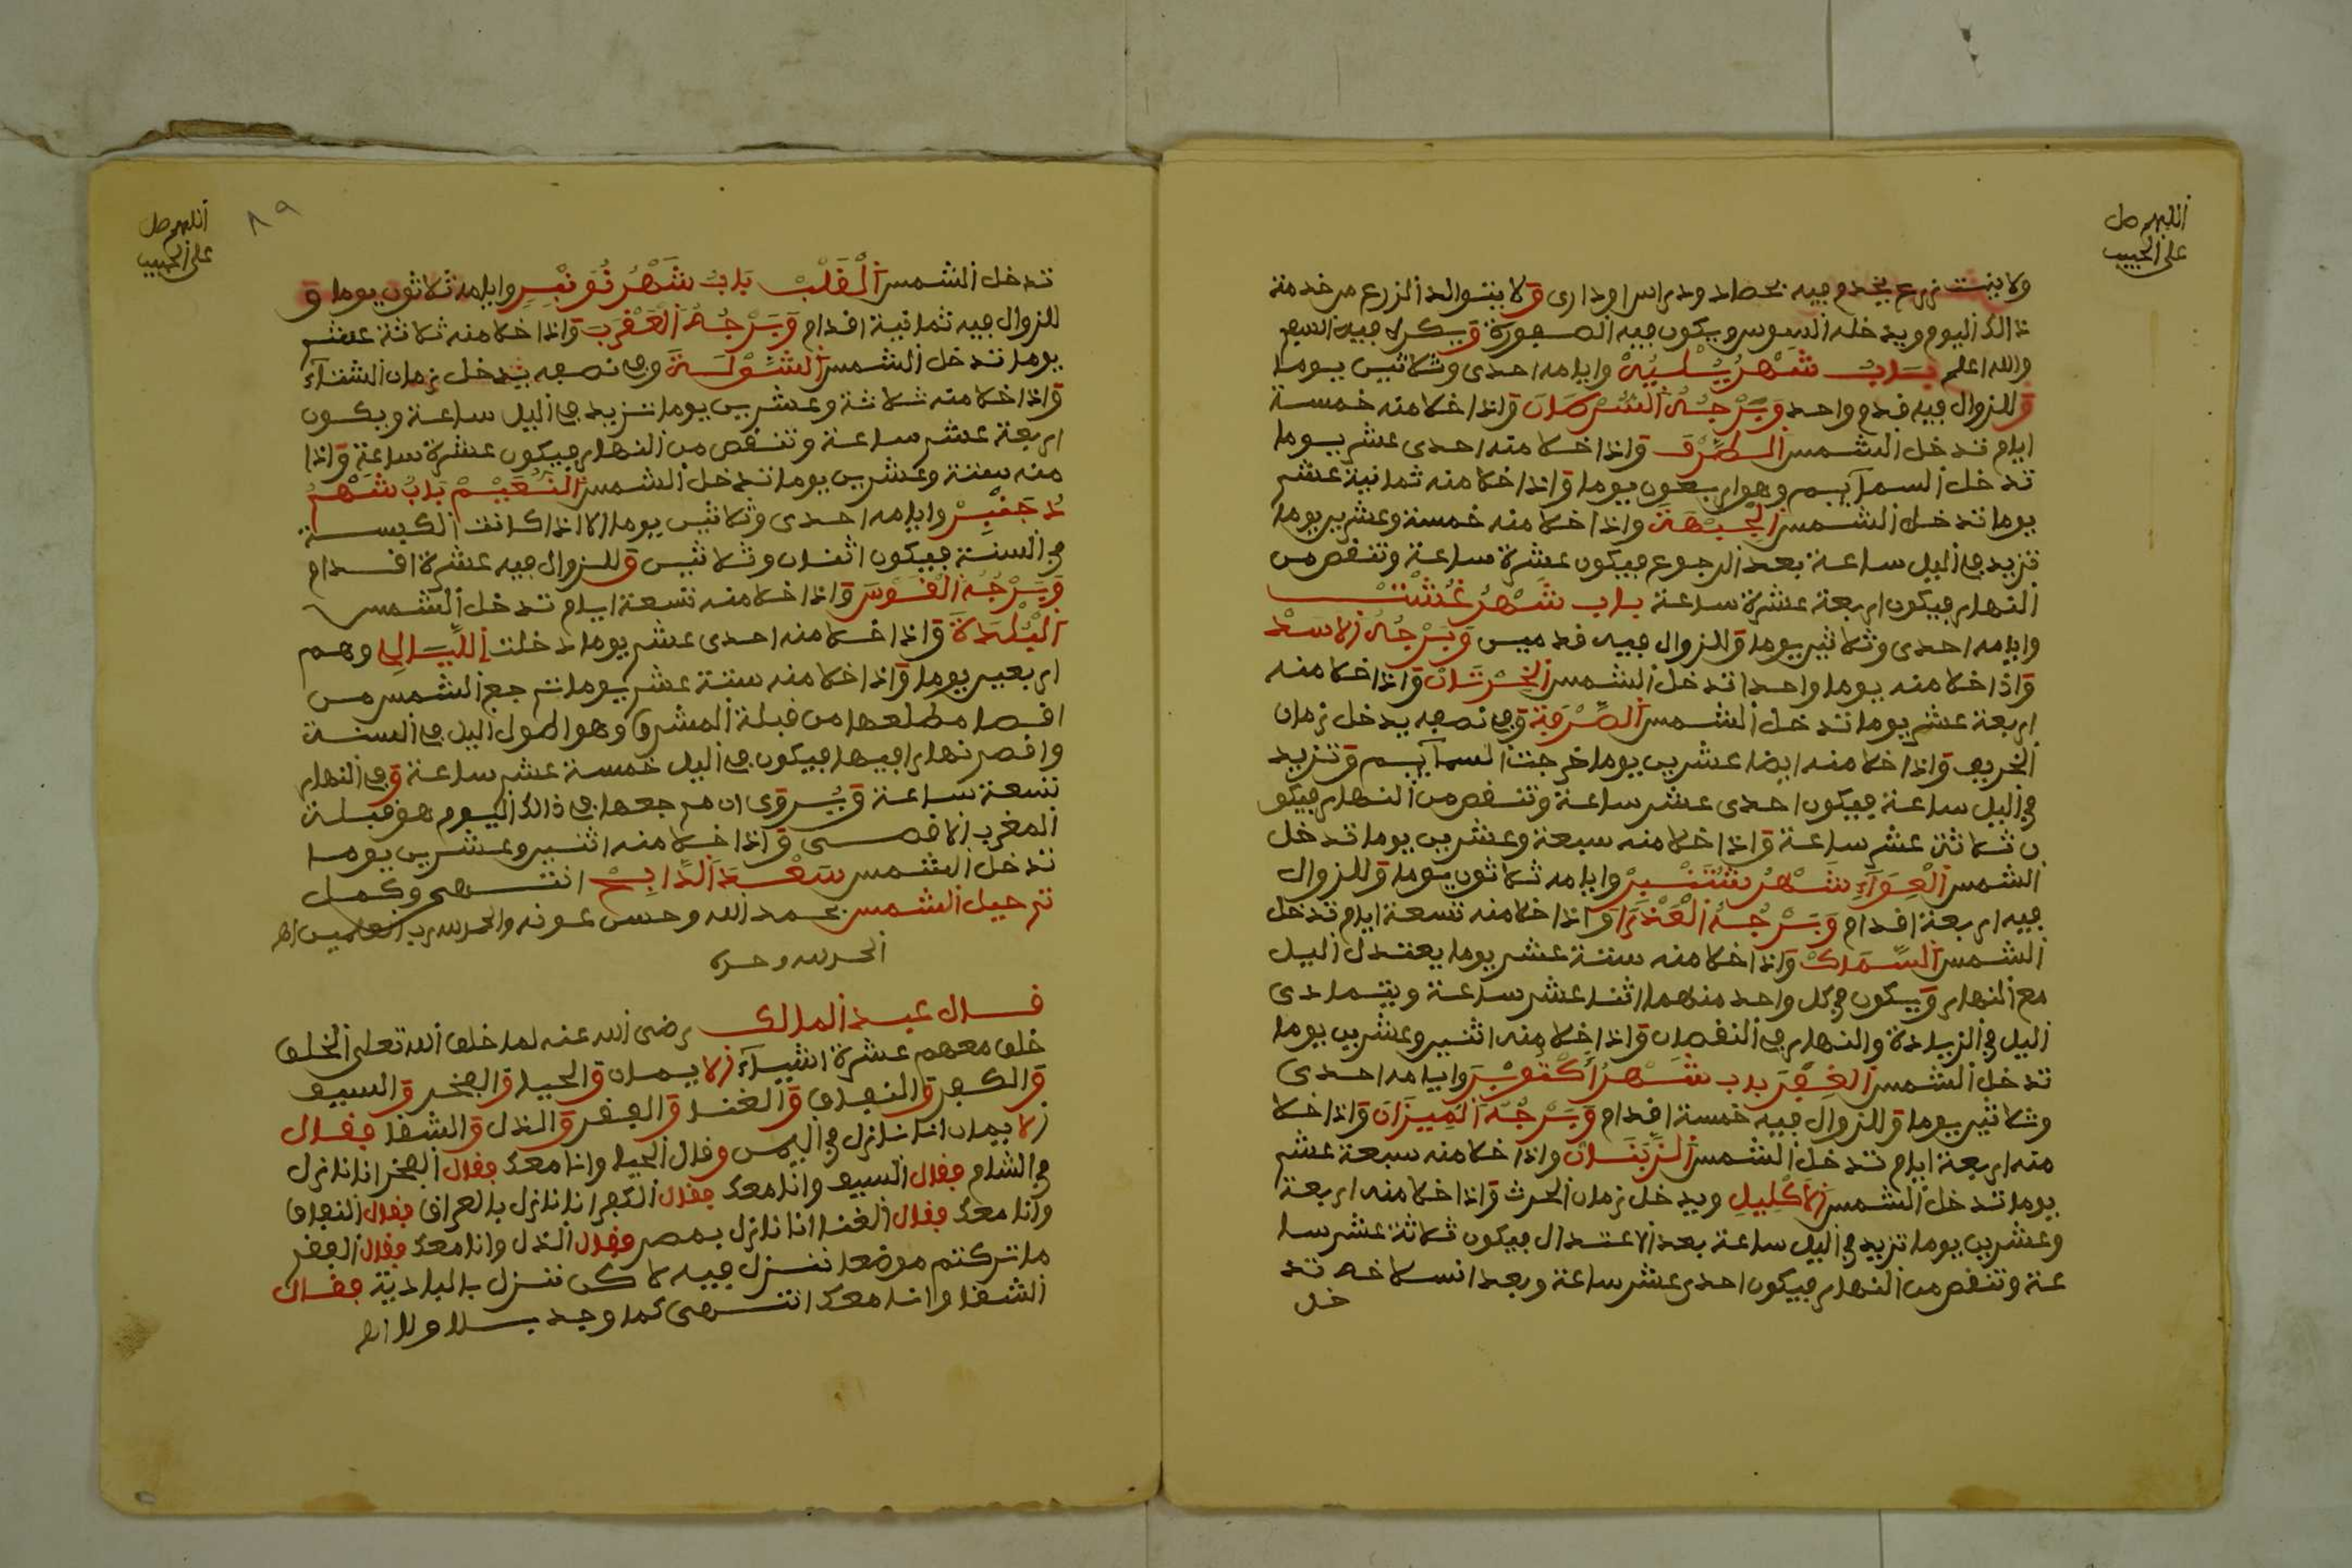 اللهم صل
على الحبيب
ولا ينبت زرع يخدم فيه بحصاد ودراس اوذارى ولا يتوالد الزرع من خدمة
ذالك اليوم ويدخله السوس ويكون فيه الصبورة ويكره فيه السهم
والله اعلم باب شهر يليه وايامه احدى وثلاثين يوما
وللزوال فيه قدم واحد وبرجه السرطان واذا خلا منه خمسة
ايام تدخل الشمس الطرف واذا خلا منه احدى عشر يوما
تدخل السمآيم وهو اربعون يوما واذا خلا منه ثمانية عشر
يوما تدخل الشمس الجبهة واذا خلا منه خمسة وعشرين يوما
تزيد في اليل ساعة بعد الرجوع فيكون عشرة ساعة وتنقص من
النهار فيكون اربعة عشرة ساعة باب شهر غشت
وايامه احدى وثلاثين يوما وللزوال فيه قدمين وبرجه الاسد
واذا خلا منه يوما واحدا تدخل الشمس الخرتان واذا خلا منه
اربعة عشر يوما تدخل الشمس الصرفة وفي نصفه يدخل زمان
الخريف واذا خلا منه ايضا عشرين يوما خرجت السمآيم وتزيد
في اليل ساعة فيكون احدى عشر ساعة وتنقص من النهار فيكو
ن ثلاثة عشر ساعة واذا خلا منه سبعة وعشرين يوما تدخل
الشمس العوآء شهر شتنبر وايامه ثلاثون يوما وللزوال
فيه اربعة اقدام وبرجه العذرا واذا خلا منه تسعة ايام تدخل
الشمس السماك واذا خلا منه ستة عشر يوما يعتدل اليل
مع النهار ويكون في كل واحد منهما اثنا عشر ساعة ويتمادى
اليل في الزيادة والنهار في النقصان واذا خلا منه اثنين وعشرين يوما
تدخل الشمس الغفر باب شهر اكتوبر وايامه احدى
وثلاثين يوما وللزوال فيه خمسة اقدام وبرجه الميزان واذا خلا
منه اربعة ايام تدخل الشمس الزبنان واذا خلا منه سبعة عشر
يوما تدخل الشمس الاكليل ويدخل زمان الحرث واذا خلا منه اربعة
وعشرين يوما تزيد في اليل ساعة بعد الاعتدال فيكون ثلاثة عشر سا
عة وتنقص من النهار فيكون احدى عشر ساعة وبعد انسلاخه تد
خل
٨٩
اللهم صل
على الحبيب
تدخل الشمس القلب باب شهر نونبر وايامه ثلاثون يوما و
للزوال فيه ثمانية اقدام وبرجه العقرب واذا خلا منه ثلاثة عشر
يوما تدخل الشمس الشولة وفي نصفه يدخل زمان الشتآء
واذا خلا منه ثلاثة وعشرين يوما تزيد في اليل ساعة ويكون
اربعة عشر ساعة وتنقص من النهار فيكون عشرة ساعة واذا
منه ستة وعشرين يوما تدخل الشمس النعيم باب شهر
دجنبر وايامه احدى وثلاثين يوما الا اذا كانت الكبيسة
في السنة فيكون اثنان وثلاثين وللزوال فيه عشرة اقدام
وبرجه القوس واذا خلا منه تسعة ايام تدخل الشمس
البلدة واذا خلا منه احدى عشر يوما دخلت الليالي وهم
اربعين يوما واذا خلا منه ستة عشر يوما ترجع الشمس من
اقصا مطلعها من قبلة المشرق وهو اطول اليل في السنة
واقصر نهارا فيها فيكون في اليل خمسة عشر ساعة وفي النهار
تسعة ساعة ويروى ان مرجعها في ذالك اليوم هو قبلة
المغرب الاقصى واذا خلا منه اثنين وعشرين يوما
تدخل الشمس سعد الذابح انتهى وكمل
ترحيل الشمس بحمد الله وحسن عونه والحمد لله رب العالمين اه
الحمد لله وحده
قال عبد المالك رضى الله عنه لما خلق الله تعلى الخلق
خلق معهم عشرة اشيآء الايمان والحيا والفخر والسيف
والكفر والنفاق والغنا والفقر والذل والشقا فقال
الايمان انا نازل في اليمن وقال الحيا وانا معك فقال الفخر انا نازل
في الشام فقال السيف وانا معك فقال الكفر انا نازل بالعراق فقال النفاق
وانا معك فقال الغنا انا نازل بمصر فقال الذل وانا معك فقال الفقر
ما تركتم موضعا ننزل فيه لاكن ننزل بالبادية فقال
الشقا وانا معك انتهى كما وجد بلا ولا اه